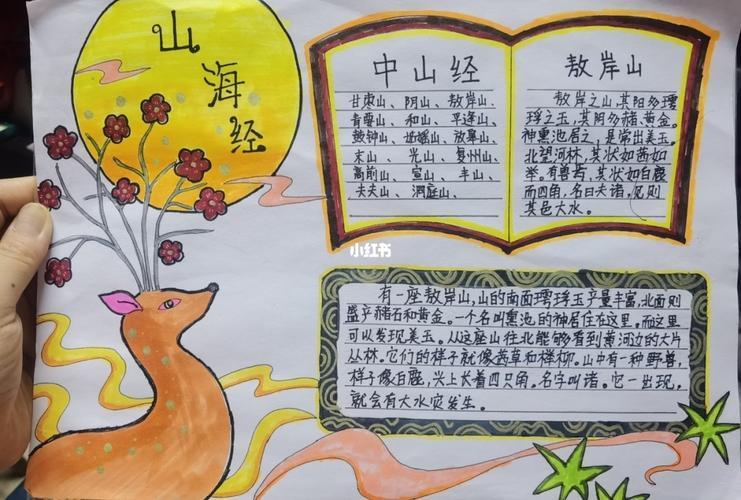 山海经
中山经
甘枣山、阴山、敖岸山、
青要山、和山、平逢山、
鼓钟山、姑媱山、放皋山、
末山、光山、复州山、
高前山、宣山、丰山、
夫夫山、洞庭山、
敖岸山
敖岸之山,其阳多㻬
琈之玉,其阴多赭、黄金。
神熏池居之,是常出美玉。
北望河林,其状如茜如
举。有兽焉,其状如白鹿
而四角,名曰夫诸,见则
其邑大水。
小红书
有一座敖岸山,山的南面㻬琈玉产量丰富,北面则
盛产赭石和黄金。一个名叫熏池的神居住在这里。而这里
可以发现美玉。从这座山往北能够看到黄河边的大片
丛林。它们的样子就像茜草和榉柳。山中有一种野兽,
样子像白鹿,头上长着四只角。名字叫诸。它一出现,
就会有大水灾发生。